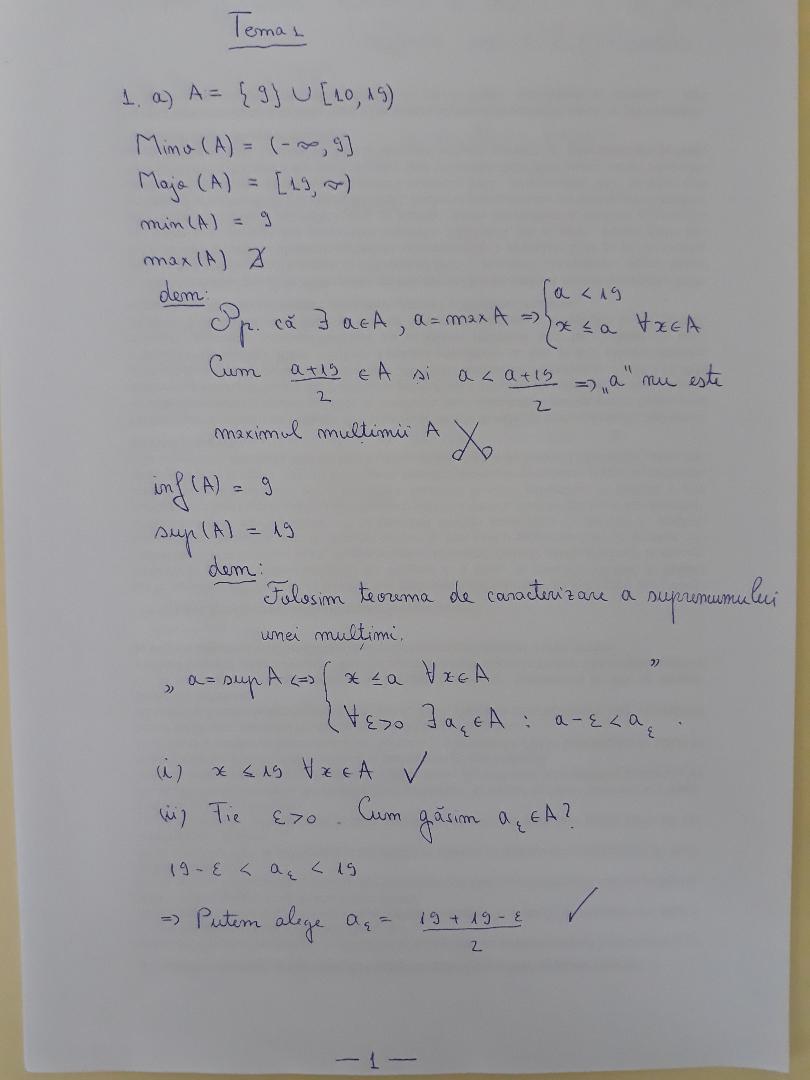 Tema 1
1. a) A = {9} ∪ [10, 19)
Mino(A) = (-∞, 9]
Majo(A) = [19, ∞)
min(A) = 9
max(A) ∄
dem:
Pp. că ∃ a∈A, a = max A ⇒ { a < 19
x ≤ a ∀x∈A
Cum (a+19)/2 ∈ A si a < (a+19)/2 ⇒ „a" nu este
maximul mulțimii A
inf(A) = 9
sup(A) = 19
dem:
Folosim teorema de caracterizare a supremumului
unei mulțimi.
„ a = sup A ⇔ { x ≤ a ∀x∈A "
∀ε>0 ∃ a_ε ∈ A : a-ε < a_ε .
(i) x ≤ 19 ∀x∈A ✓
(ii) Fie ε>0. Cum găsim a_ε ∈ A?
19-ε < a_ε < 19
⇒ Putem alege a_ε = (19 + 19 - ε)/2 ✓
— 1 —